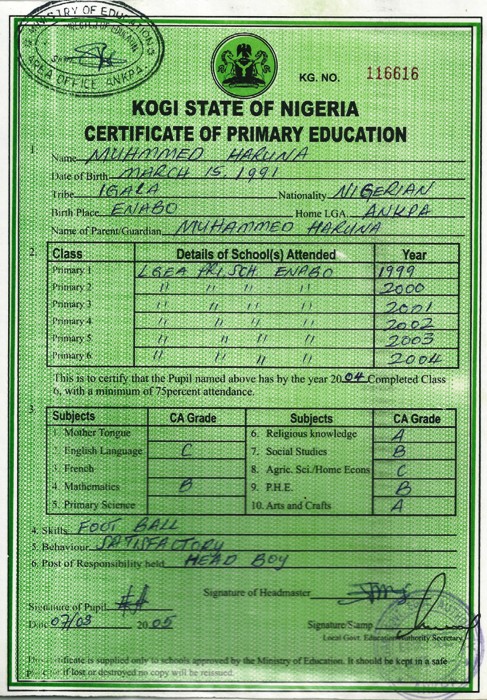 MINISTRY OF EDUCATION
AREA OFFICE ANKPA
KG. NO. 116616
KOGI STATE OF NIGERIA
CERTIFICATE OF PRIMARY EDUCATION
1. Name MUHMMED HARUNA
Date of Birth MARCH 15, 1991
Tribe IGALA Nationality NIGERIAN
Birth Place ENABO Home LGA. ANKPA
Name of Parent/Guardian MUHAMMED HARUNA
2. Class Details of School(s) Attended Year
Primary 1 LGEA PRI. SCH. ENABO 1999
Primary 2 " " " " 2000
Primary 3 " " " " 2001
Primary 4 " " " " 2002
Primary 5 " " " " 2003
Primary 6 " " " " 2004
This is to certify that the Pupil named above has by the year 2004 Completed Class
6, with a minimum of 75percent attendance.
3. Subjects CA Grade Subjects CA Grade
1. Mother Tongue 6. Religious knowledge A
2. English Language C 7. Social Studies B
3. French 8. Agric. Sci./Home Econs C
4. Mathematics B 9. P.H.E. B
5. Primary Science 10. Arts and Crafts A
4. Skills FOOT BALL
5. Behaviour SATISFACTORY
6. Post of Responsibility held HEAD BOY
Signature of Headmaster
Signature of Pupil
Date 07/03 2005 Signature/Stamp
Local Govt. Education Authority Secretary
This certificate is supplied only to schools approved by the Ministry of Education. It should be kept in a safe
Place for if lost or destroyed no copy will be reissued.